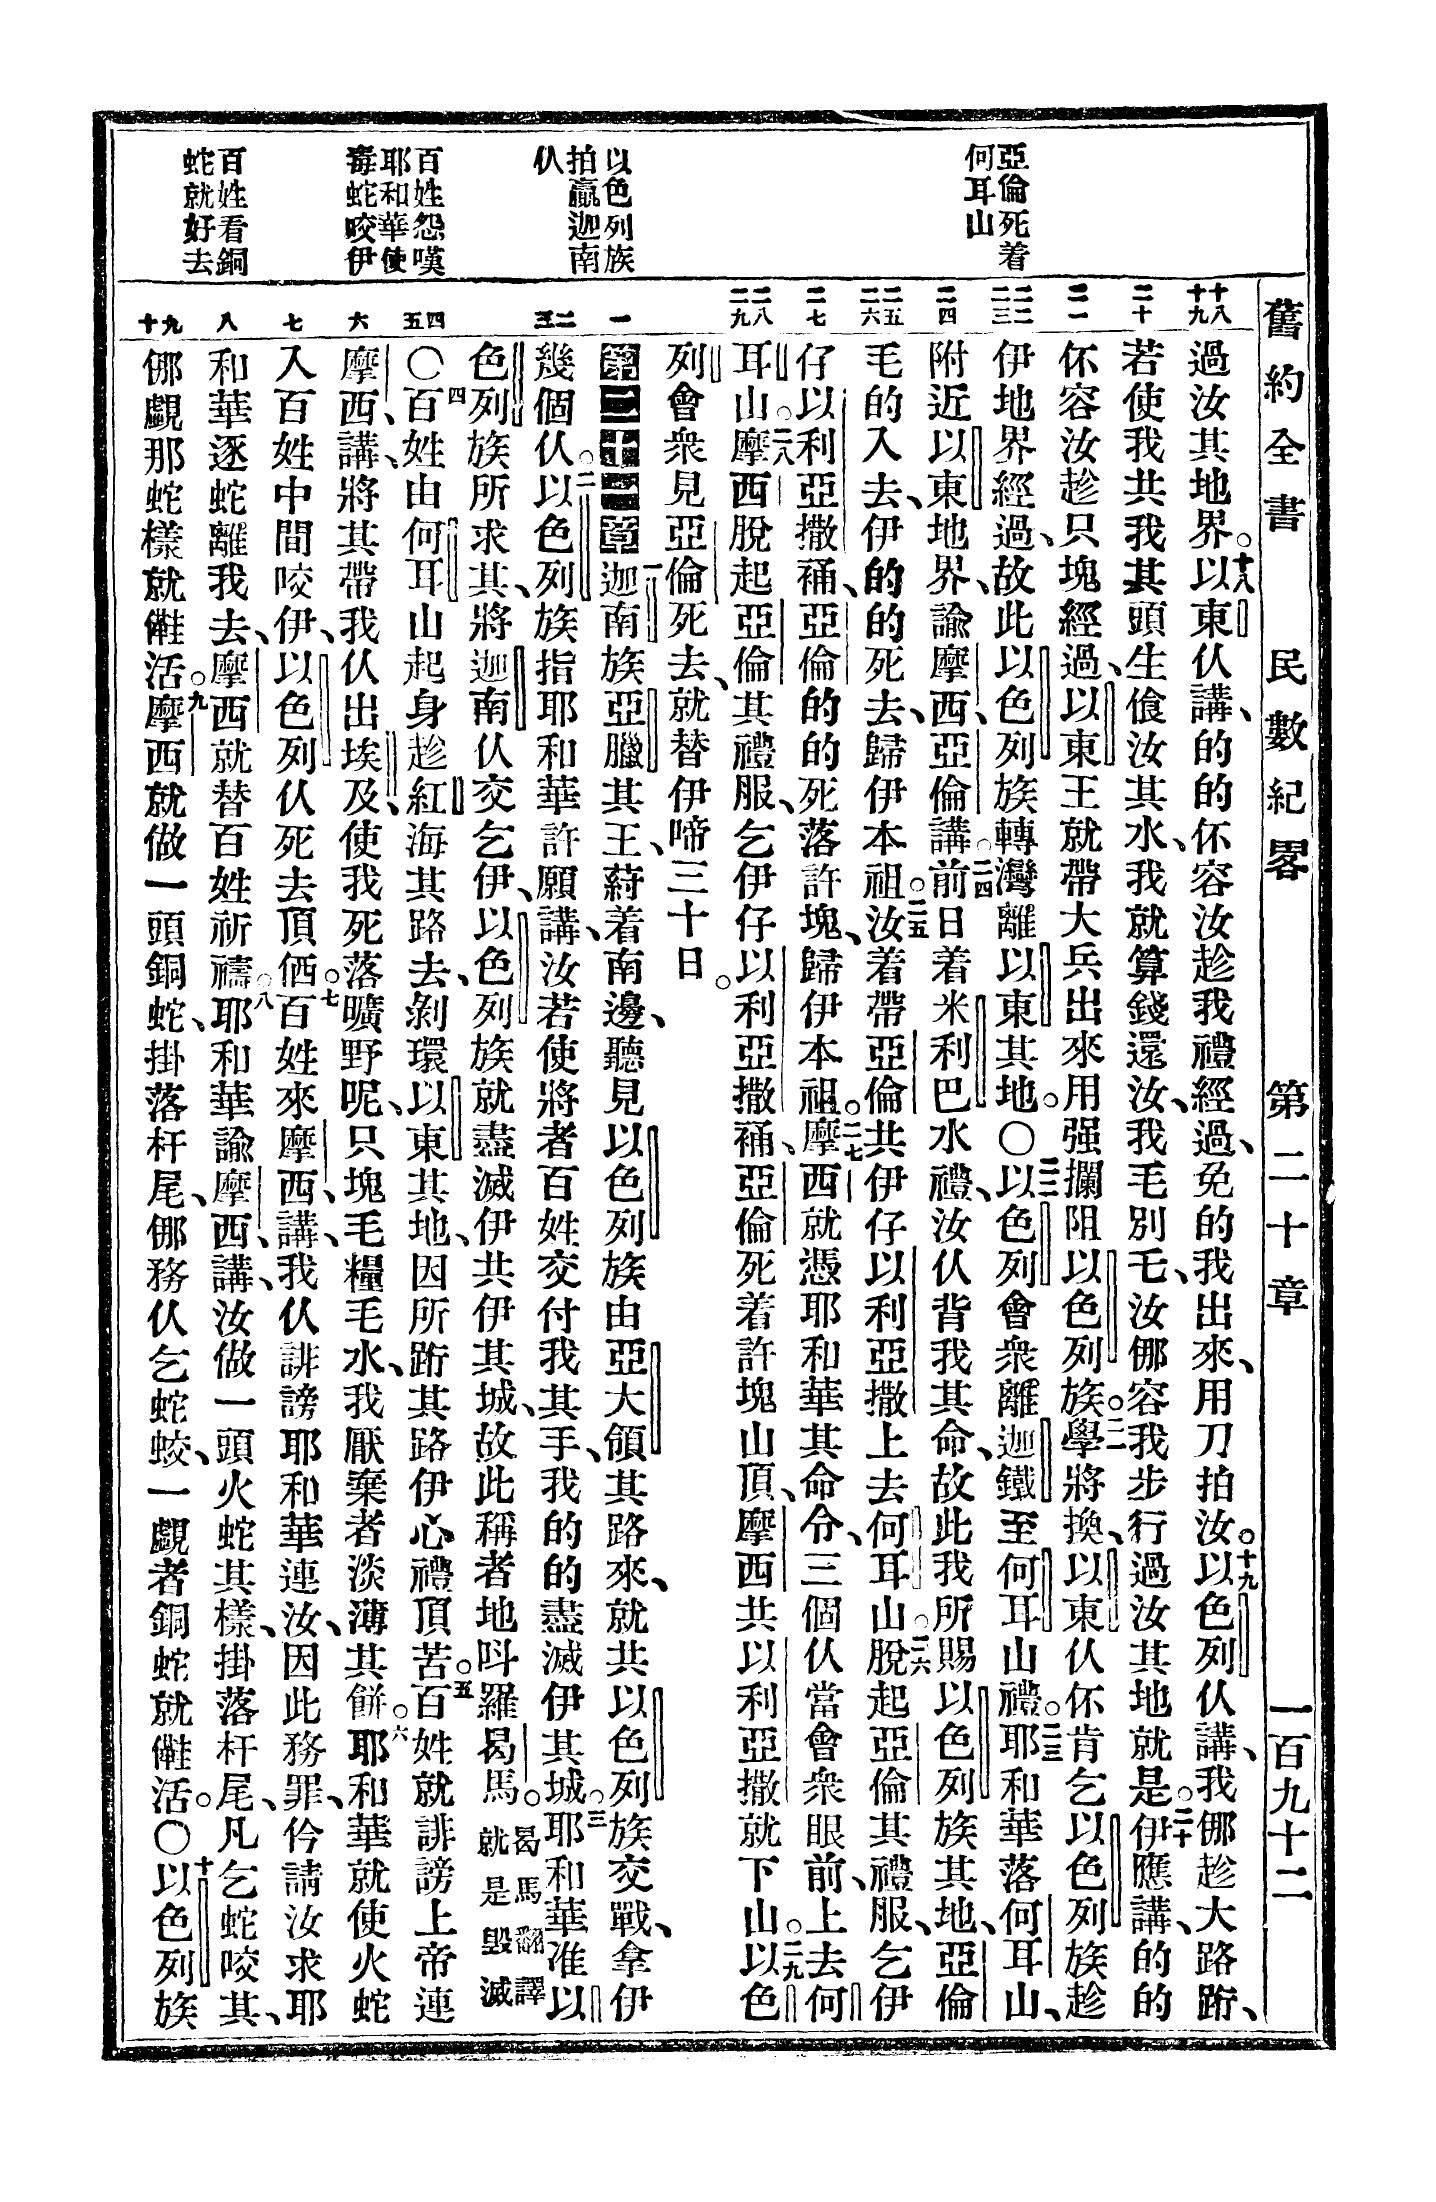 舊約全書 民數紀畧 第二十章 一百九十二
亞倫死着
何耳山
以色列族
拍贏迦南
仈
百姓怨嘆
耶和華使
毒蛇咬伊
百姓看銅
蛇就好去
十八 十九
二十
二一
二二 二三
二四
二五 二六
二七
二八 二九
一
二 三
四 五
六
七
八
九 十
過汝其地界。十八以東仈講、的的伓容汝趁我禮經過、免的我出來、用刀拍汝。十九以色列仈講、我儚趁大路跲、
若使我共我其頭生飡汝其水、我就算錢還汝、我毛別乇、汝儚容我步行過汝其地就是。二十伊應講、的的
伓容汝趁只塊經過、以東王就帶大兵出來用强攔阻以色列族。二一學將換、以東仈伓肯乞以色列族趁
伊地界經過、故此以色列族轉灣離以東其地。〇二二以色列會衆離迦鐵至何耳山禮。二三耶和華落何耳山、
附近以東地界、諭摩西、亞倫講。二四前日着米利巴水禮、汝仈背我其命、故此我所賜以色列族其地、亞倫
毛的入去、伊的的死去、歸伊本祖。二五汝着帶亞倫共伊仔以利亞撒上去何耳山。二六脫起亞倫其禮服、乞伊
仔以利亞撒䘄、亞倫的的死落許塊、歸伊本祖。二七摩西就憑耶和華其命令、三個仈當會衆眼前、上去何
耳山。二八摩西脫起亞倫其禮服、乞伊仔以利亞撒䘄、亞倫死着許塊山頂、摩西共以利亞撒就下山。二九以色
列會衆見亞倫死去、就替伊啼三十日。
第二十一章 一迦南族亞臘其王、䓀着南邊、聽見以色列族由亞大領其路來、就共以色列族交戰、拿伊
幾個仈。二以色列族指耶和華許願講、汝若使將者百姓交付我其手、我的的盡滅伊其城。三耶和華准以
色列族所求其、將迦南仈交乞伊、以色列族就盡滅伊共伊其城、故此稱者地呌羅曷馬。曷馬翻譯就是毀滅
〇四百姓由何耳山起身趁紅海其路去、剝環以東其地、因所跲其路伊心禮頂苦。五百姓就誹謗上帝連
摩西、講、將其帶我仈出埃及、使我死落曠野呢、只塊毛糧毛水、我厭棄者淡薄其餅。六耶和華就使火蛇
入百姓中間咬伊、以色列仈死去頂価。七百姓來摩西、講、我仈誹謗耶和華連汝、因此務罪、仱請汝求耶
和華逐蛇離我去、摩西就替百姓祈禱。八耶和華諭摩西、講、汝做一頭火蛇其樣、掛落杆尾、凡乞蛇咬其、
儚覷那蛇樣就儺活。九摩西就做一頭銅蛇、掛落杆尾、儚務仈乞蛇蛟、一覷者銅蛇就儺活。〇十以色列族